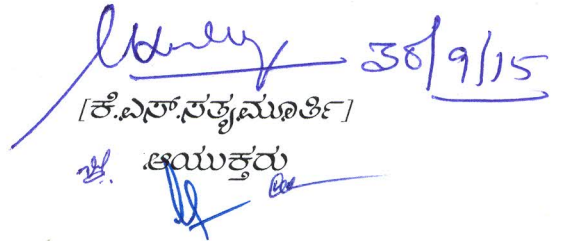 30/9/15
[ಕೆ.ಎಸ್.ಸತ್ಯಮೂರ್ತಿ]
ಆಯುಕ್ತರು